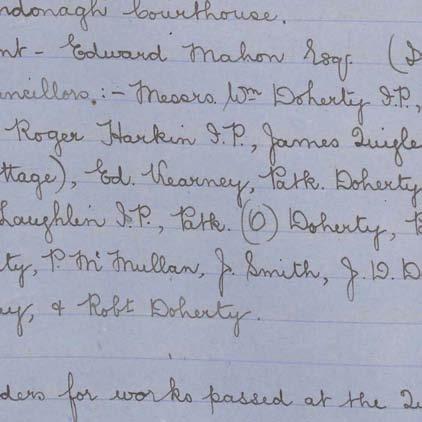 ndonagh Courthouse.
nt - Edward Mahon Esqr. (I
ncillors :- Messrs. Wm Doherty J.P.,
Roger Harkin J.P., James Quigle
ttage), Ed. Kearney, Patk. Doherty
Laughlin J.P., Patk. (O) Doherty, P
ty, P. Mc Mullan, J. Smith, J. D. D
ay, & Robt Doherty.
ders for works passed at the Qu